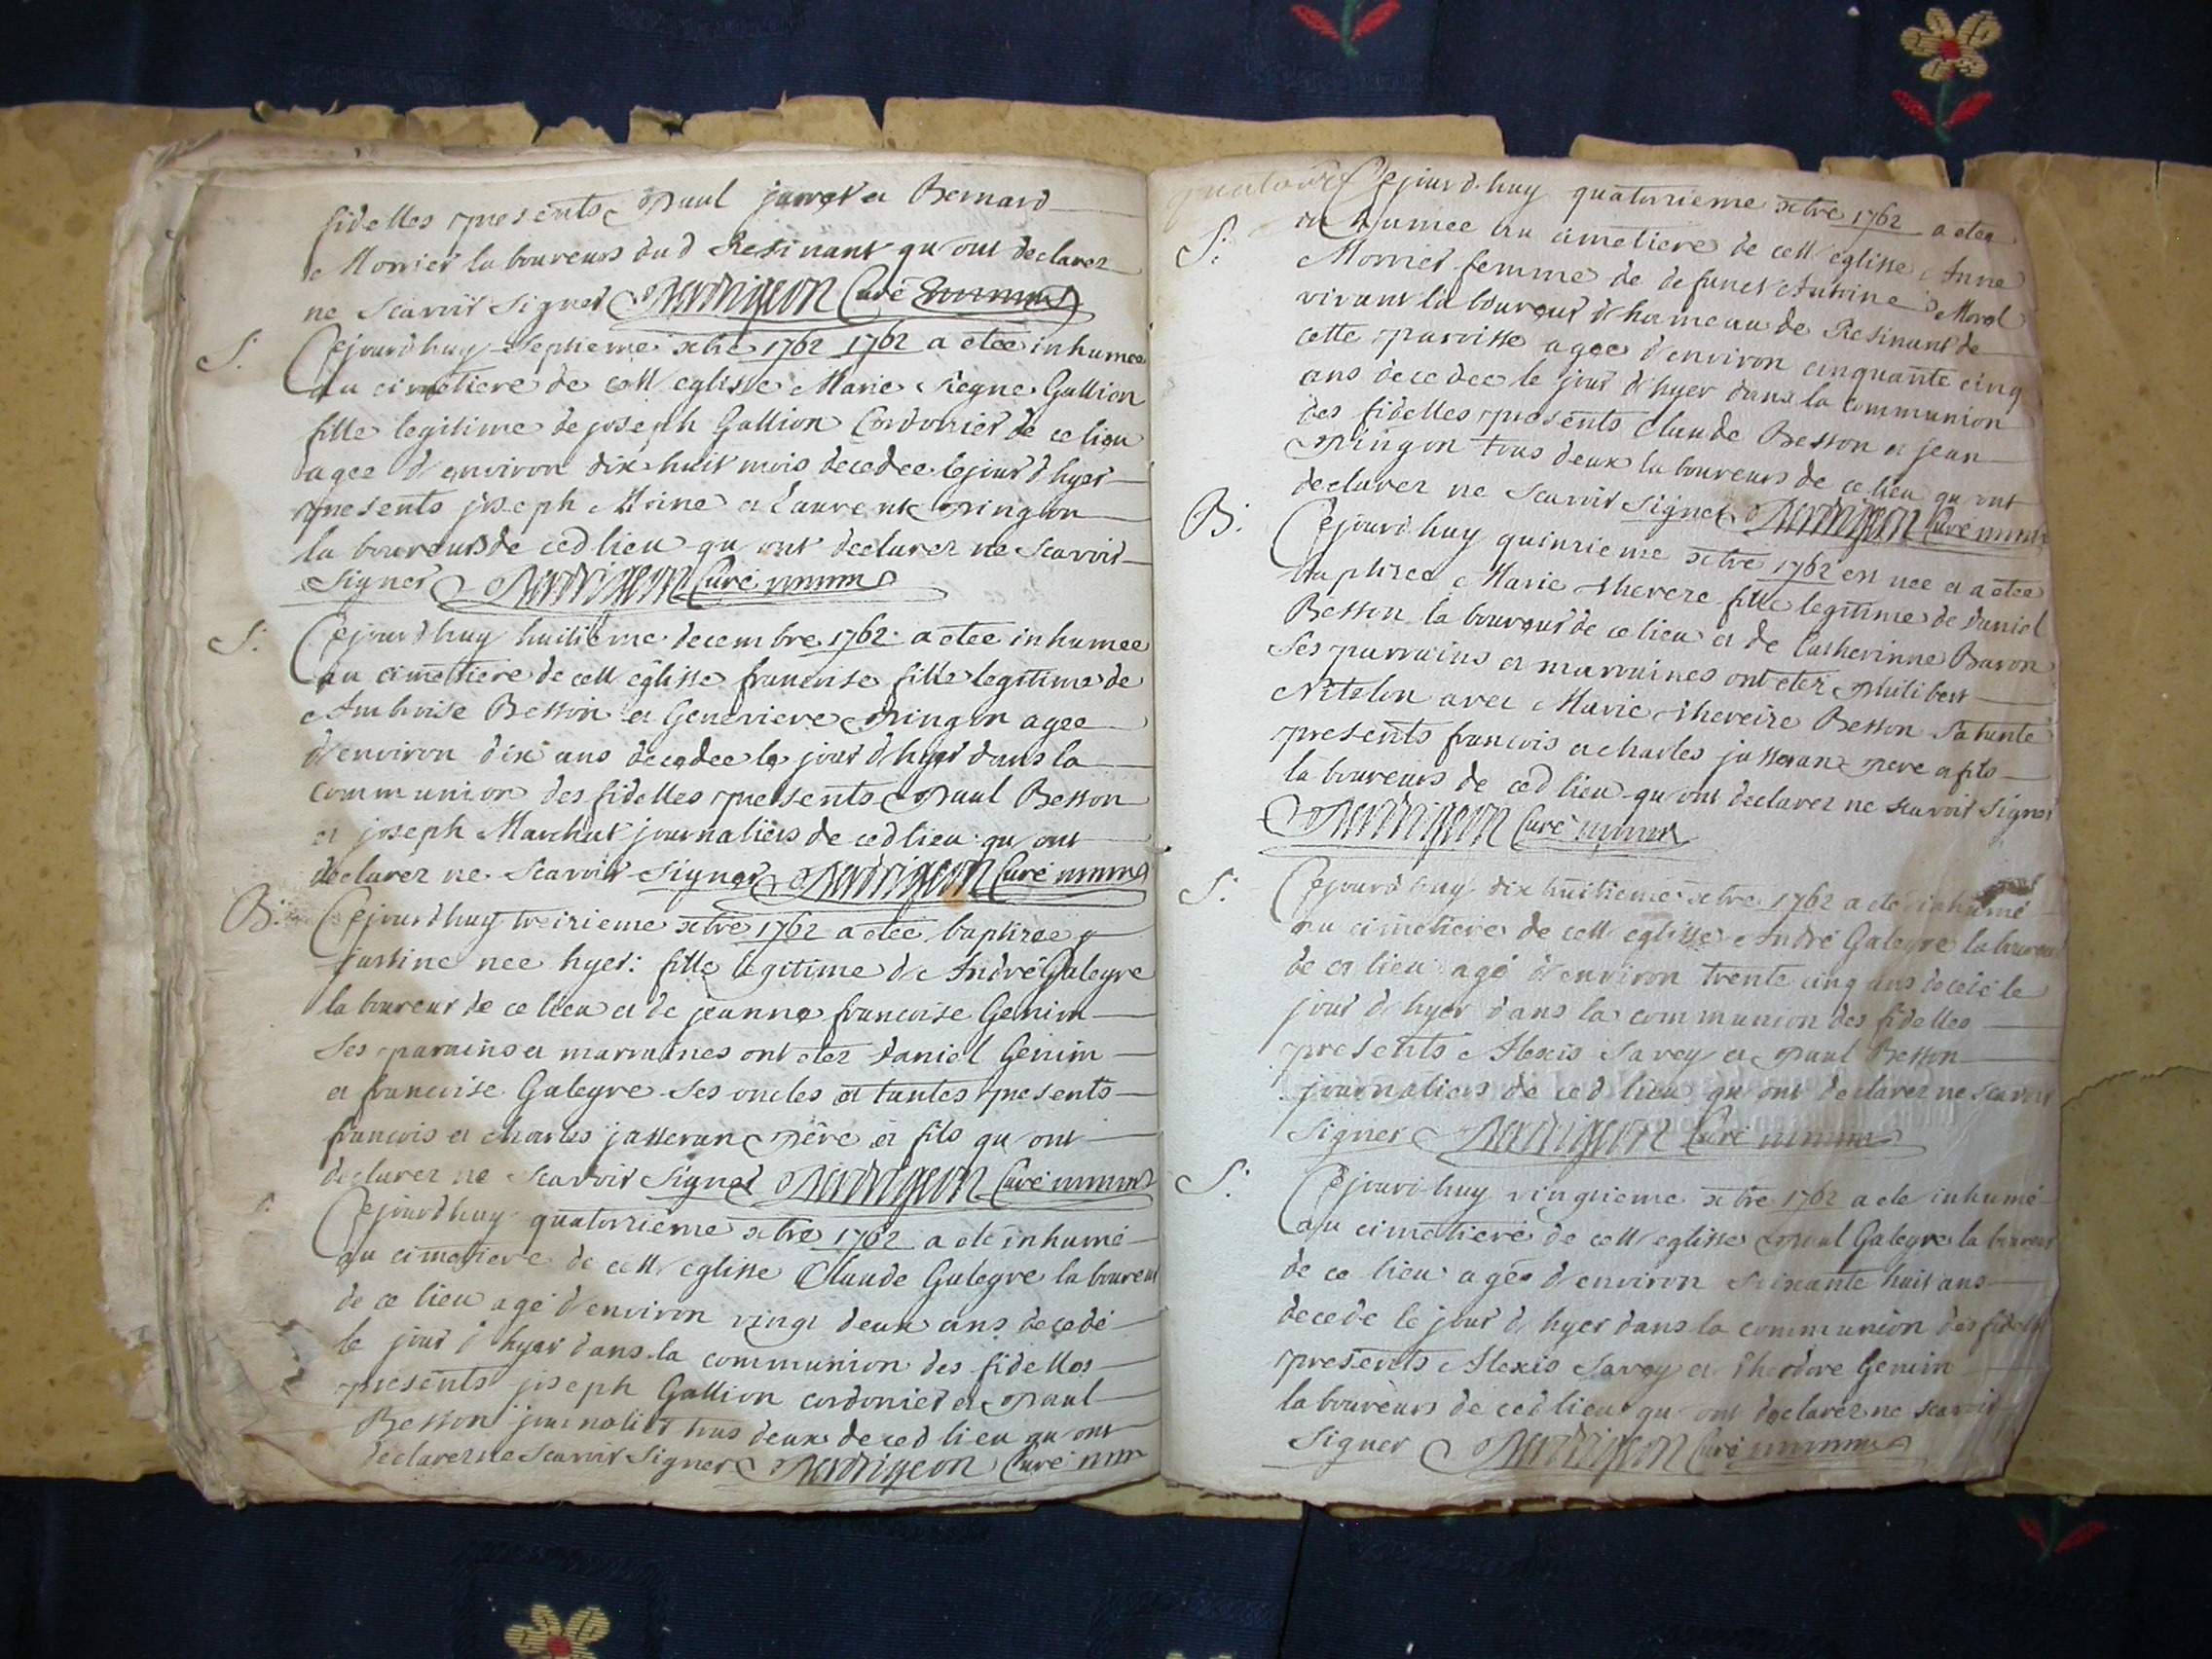 fidelles presents Paul jarret et Bernard
Monier laboureurs dud Resinant qu ont declarez
ne scavoir signer Curé
S.
Cejourdhuy Septieme xbre 1762 1762 a etee inhumee
au cimetiere de cett eglisse Marie Regne Gallion
fille legitime de joseph Gallion Cordonier de ce lieu
agee d environ dix huit mois decedee le jour d hyer
presents joseph Moine et Laurent Pingon
laboureurs de ced lieu qu ont declarez ne scavoir
signer Curé
S.
Cejourdhuy huitieme decembre 1762 a etee inhumee
au cimetiere de cett eglisse francoise fille legitime de
Ambroise Besson et Genevieve Pingon agee
d'environ dix ans decedee le jour d hyer dans la
communion des fidelles presents Paul Besson
et joseph Marchat journaliers de ced lieu qu ont
declarez ne scavoir signer Curé
B.
Cejourdhuy treizieme xbre 1762 a etee baptizee
justine nee hyer: fille legitime de André Galegre
laboureur de ce lieu et de jeanne francoise Genin
Ses parains et marraines ont etez Daniel Genin
et francoise Galegre Ses oncles et tantes presents
francois et charles jasseran pere et fils qu ont
declarez ne scavoir signer Curé
S.
Cejourdhuy quatorzieme xbre 1762 a eté inhumé
au cimetiere de cett eglisse Claude Galegre laboureur
de ce lieu agé d'environ vingt deux ans decedé
le jour d hyer dans la communion des fidelles
presents joseph Gallion cordonier et Paul
Besson journalier tous deux de ced lieu qu ont
declarez ne scavoir signer Curé
Cejourd huy quatorzieme xbre 1762 a etee
S.
inhumee au cimetiere de cett eglisse Anne
Monier femme de defunct Antoine Morel
vivant laboureur d hameau de Resinant de
cette paroisse agee d'environ cinquante cinq
ans decedee le jour d'hyer dans la communion
des fidelles presents Claude Besson et jean
Pingon tous deux laboureurs de ce lieu qu ont
declarez ne scavoir signer Curé
B.
Cejourd huy quinzieme xbre 1762 est nee et a etee
baptizee Marie thereze fille legitime de Daniel
Besson laboureur de ce lieu et de Catherinne Baron
Ses parrains et marraines ont etez Philibert
avec Marie Besson Sa tante
presents francois et charles jasseran pere et fils
laboureurs de ced lieu qu ont declarez ne scavoir signer
Curé
S.
Cejourd huy dix huitieme xbre 1762 a eté inhumé
au cimetiere de cett eglisse André Galegre laboureur
de ce lieu agé d'environ trente cinq ans decedé le
jour d hyer dans la communion des fidelles
presents Alexis Savey et Paul Besson
journaliers de ced lieu qu ont declarez ne scavoir
signer Curé
S.
Cejourd huy vingtieme xbre 1762 a ete inhumé
au cimetiere de cett eglisse Paul Galegre laboureur
de ce lieu agé d environ soixante huit ans
decede le jour d hyer dans la communion des fidelles
presents Alexis Savey et Theodore Genin
laboureurs de ced lieu qu ont declarez ne scavoir
signer Curé